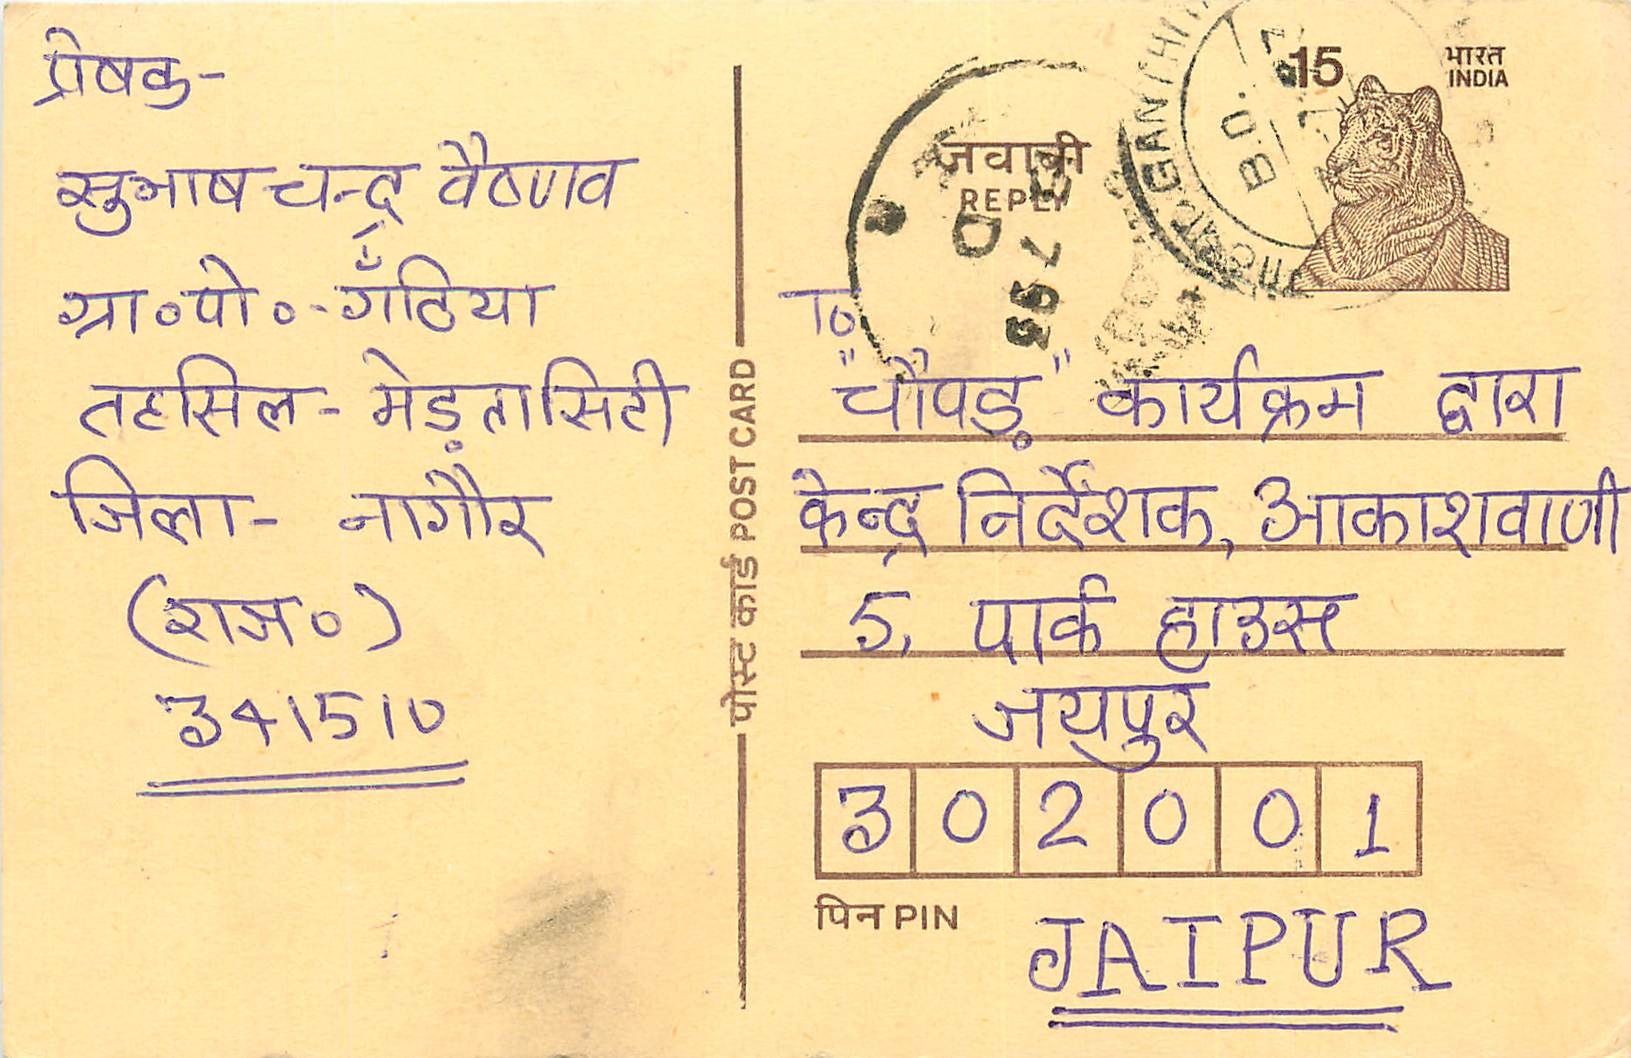 प्रेषक-
सुभाष चन्द्र वैष्णव
ग्रा०पो०-गँठिया
तहसिल- मेड़तासिटी
जिला- नागौर
(राज०)
341510
पोस्ट कार्ड POST CARD
जवाबी
REPLY
15
भारत
INDIA
GANDHI
B.O.
To
"चौपड़" कार्यक्रम द्वारा
केन्द्र निर्देशक, आकाशवाणी
5, पार्क हाउस
जयपुर
302001
पिन PIN
JAIPUR